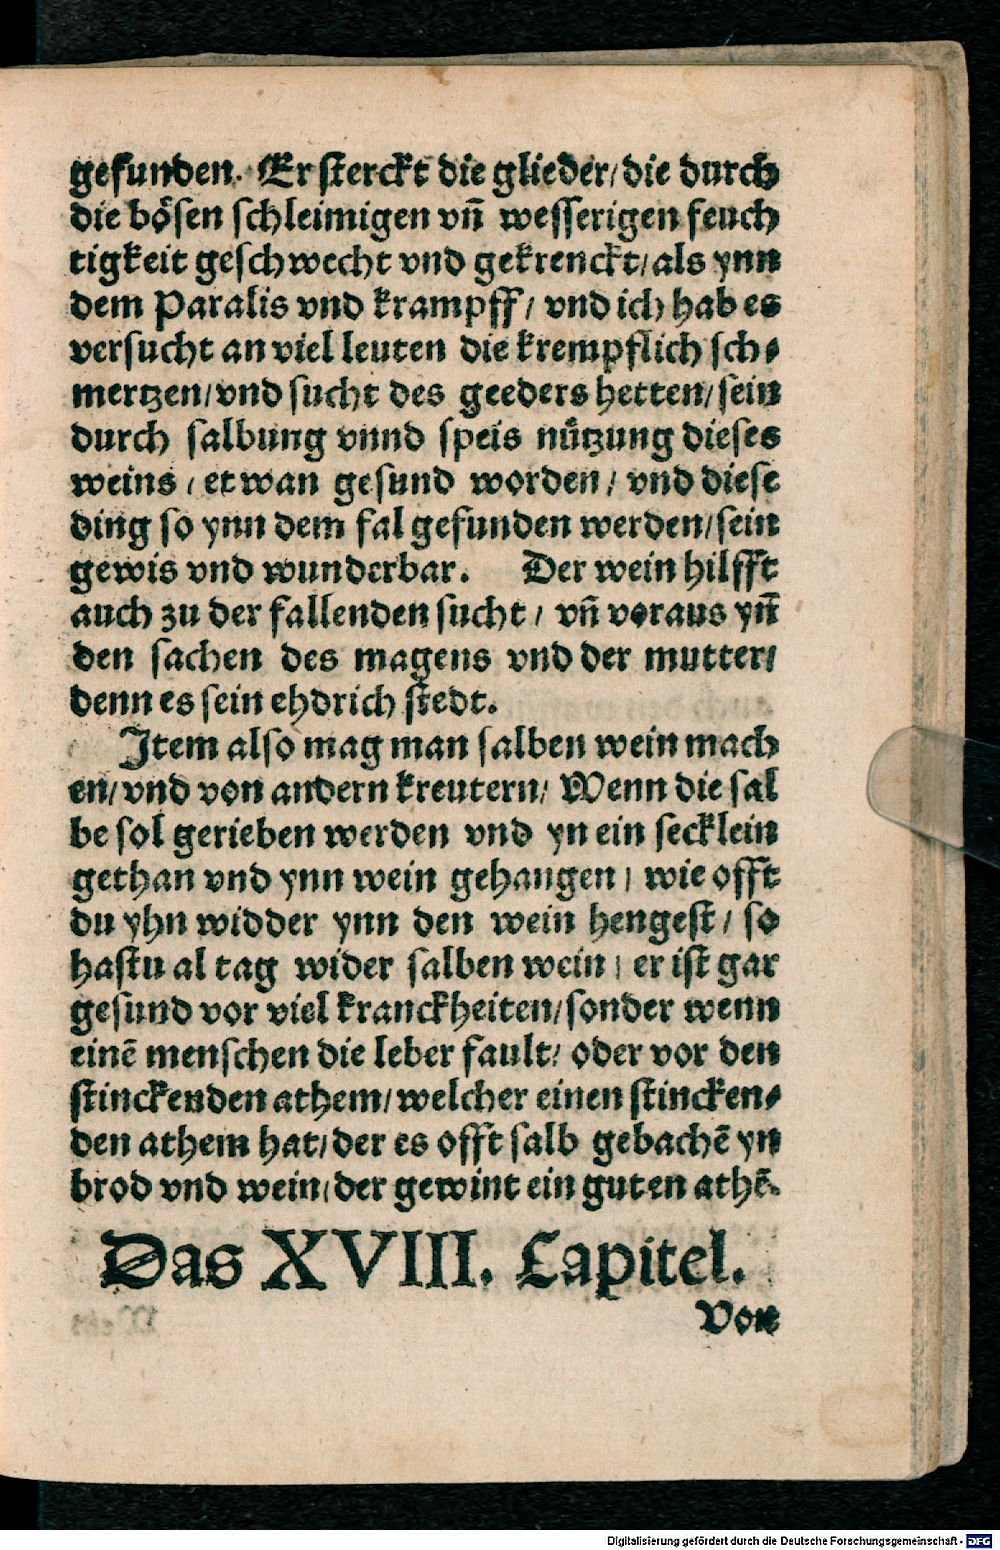 gefunden. Er sterckt die glieder/die durch
die bösen schleimigen vñ wesserigen feuch
tigkeit geschwecht vnd gekrenckt/als ynn
dem Paralis vnd krampff/ vnd ich hab es
versucht an viel leuten die krempflich sch⸗
mertzen/vnd sucht des geeders hetten/sein
durch salbung vnnd speis nützung dieses
weins/etwan gesund worden/ vnd diese
ding so ynn dem fal gefunden werden/sein
gewis vnd wunderbar. Der wein hilfft
auch zu der fallenden sucht/ vñ voraus yñ
den sachen des magens vnd der mutter/
denn es sein ehdrich stedt.
Item also mag man salben wein mach
en/vnd von andern kreutern/ Wenn die sal
be sol gerieben werden vnd yn ein secklein
gethan vnd ynn wein gehangen/ wie offt
du yhn widder ynn den wein hengest/ so
hastu al tag wider salben wein/ er ist gar
gesund vor viel kranckheiten/sonder wenn
einē menschen die leber fault/ oder vor den
stinckenden athem/welcher einen stincken⸗
den athem hat/der es offt salb gebachē yn
brod vnd wein/der gewint ein guten athē.
Das XVIII. Capitel.
Von
Digitalisierung gefördert durch die Deutsche Forschungsgemeinschaft - DFG